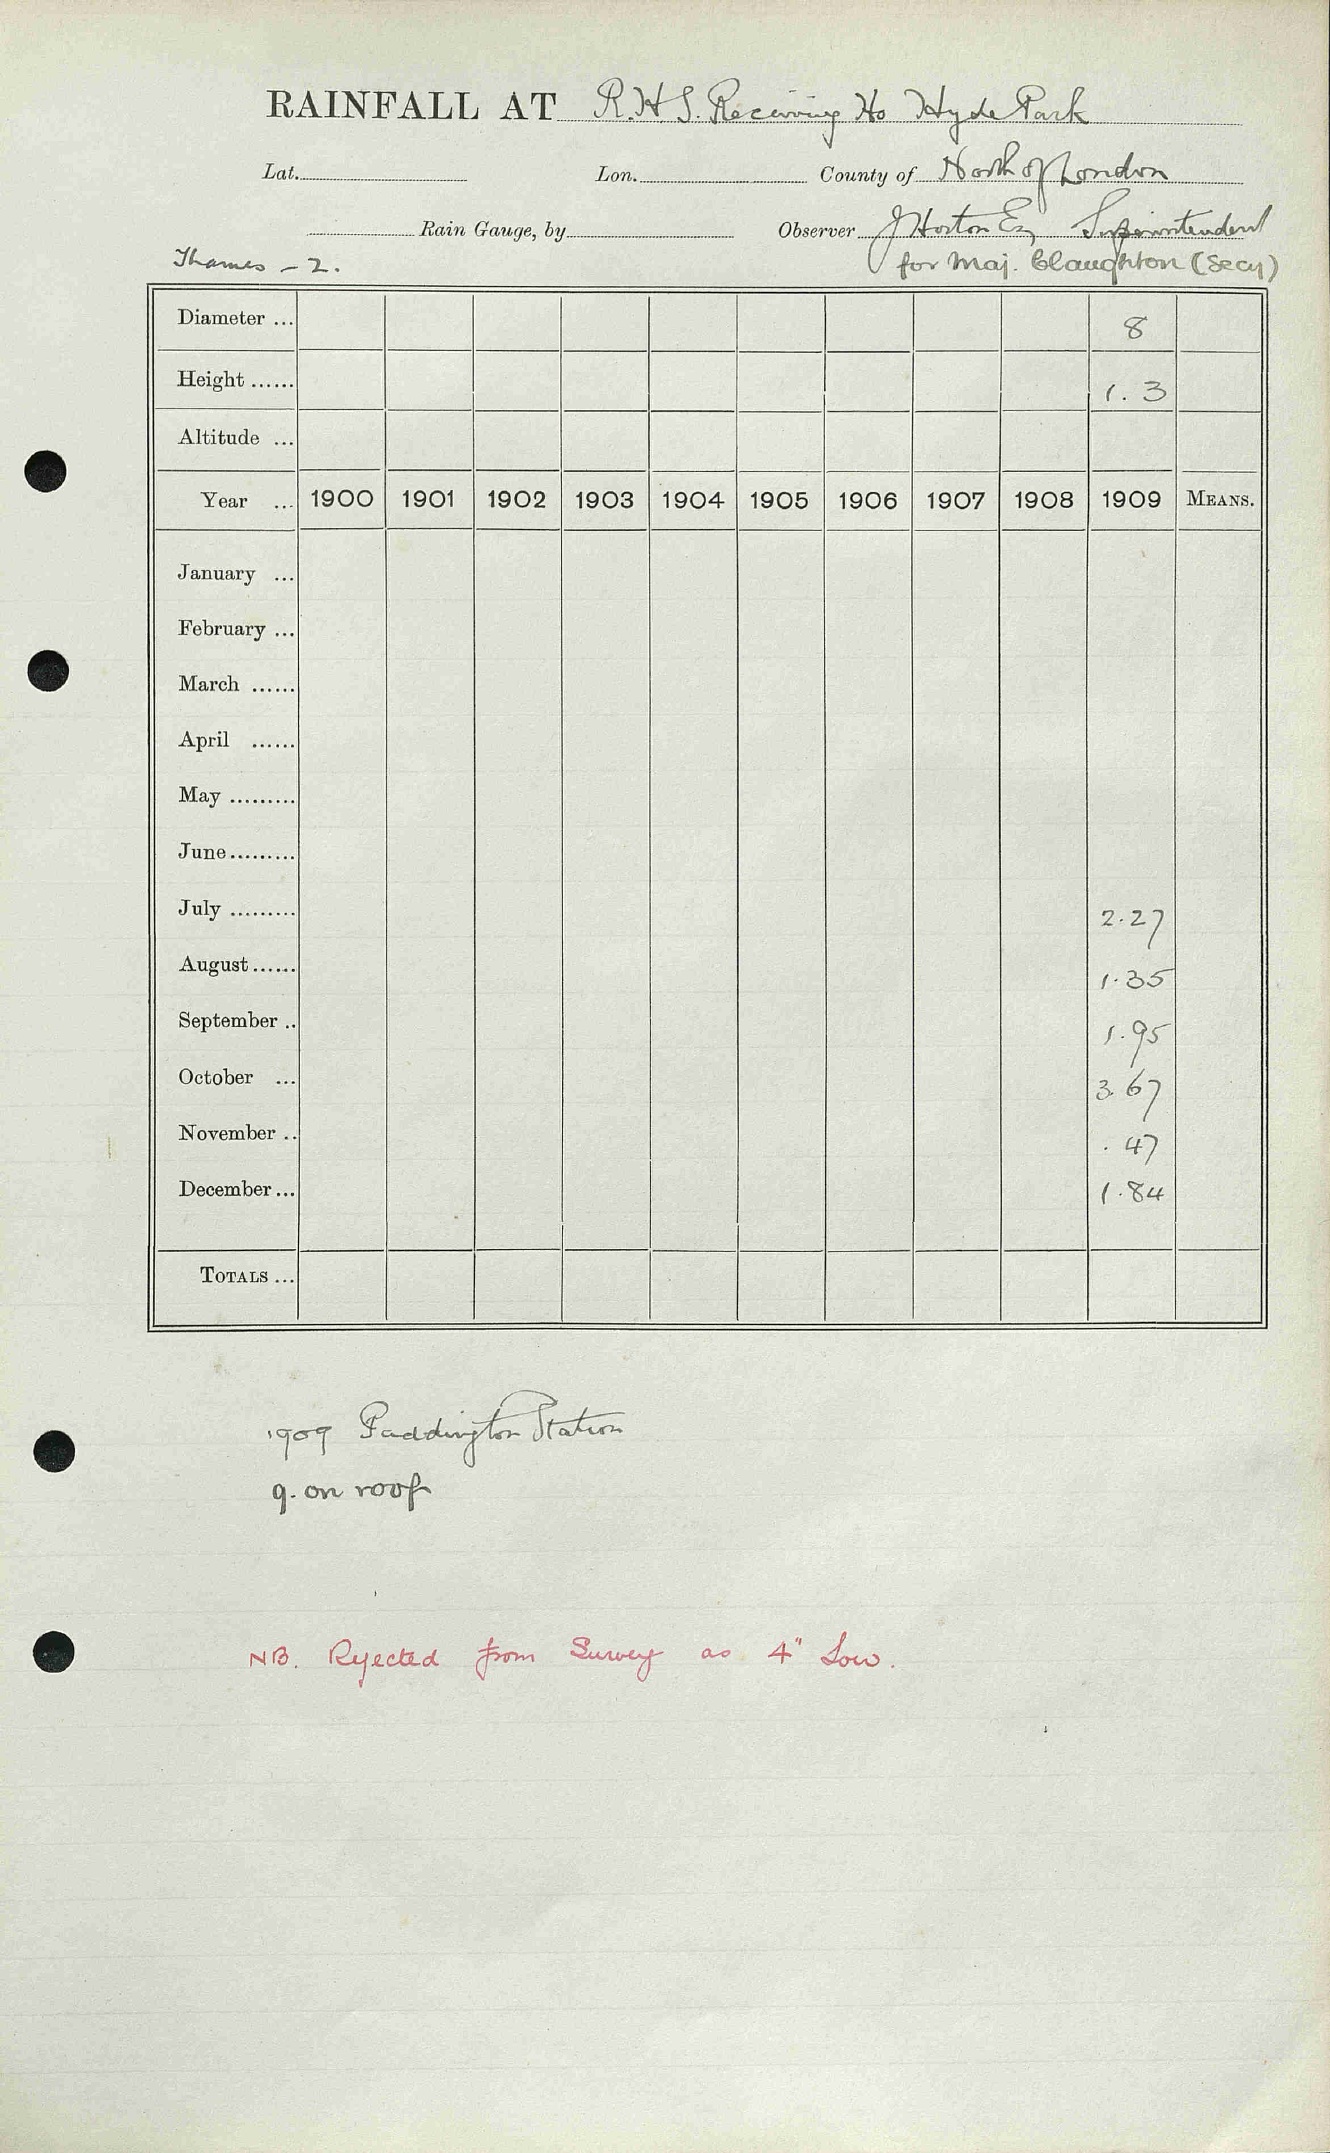 RAINFALL AT R.H.S. Receiving Ho Hyde Park
Lat. Lon. County of North of London
Rain Gauge, by Observer J Horton Esq Superintendent
Thames - 2. for Maj. Claughton (Secy)
Diameter ... 8
Height ...... 1. 3
Altitude ...
Year ... 1900 1901 1902 1903 1904 1905 1906 1907 1908 1909 MEANS.
January ...
February ...
March ......
April ......
May .........
June.........
July ......... 2.27
August...... 1.35
September .. 1.95
October ... 3.67
November .. .47
December... 1.84
TOTALS ...
1909 Paddington Station
g. on roof
NB. Rejected from Survey as 4" Low.